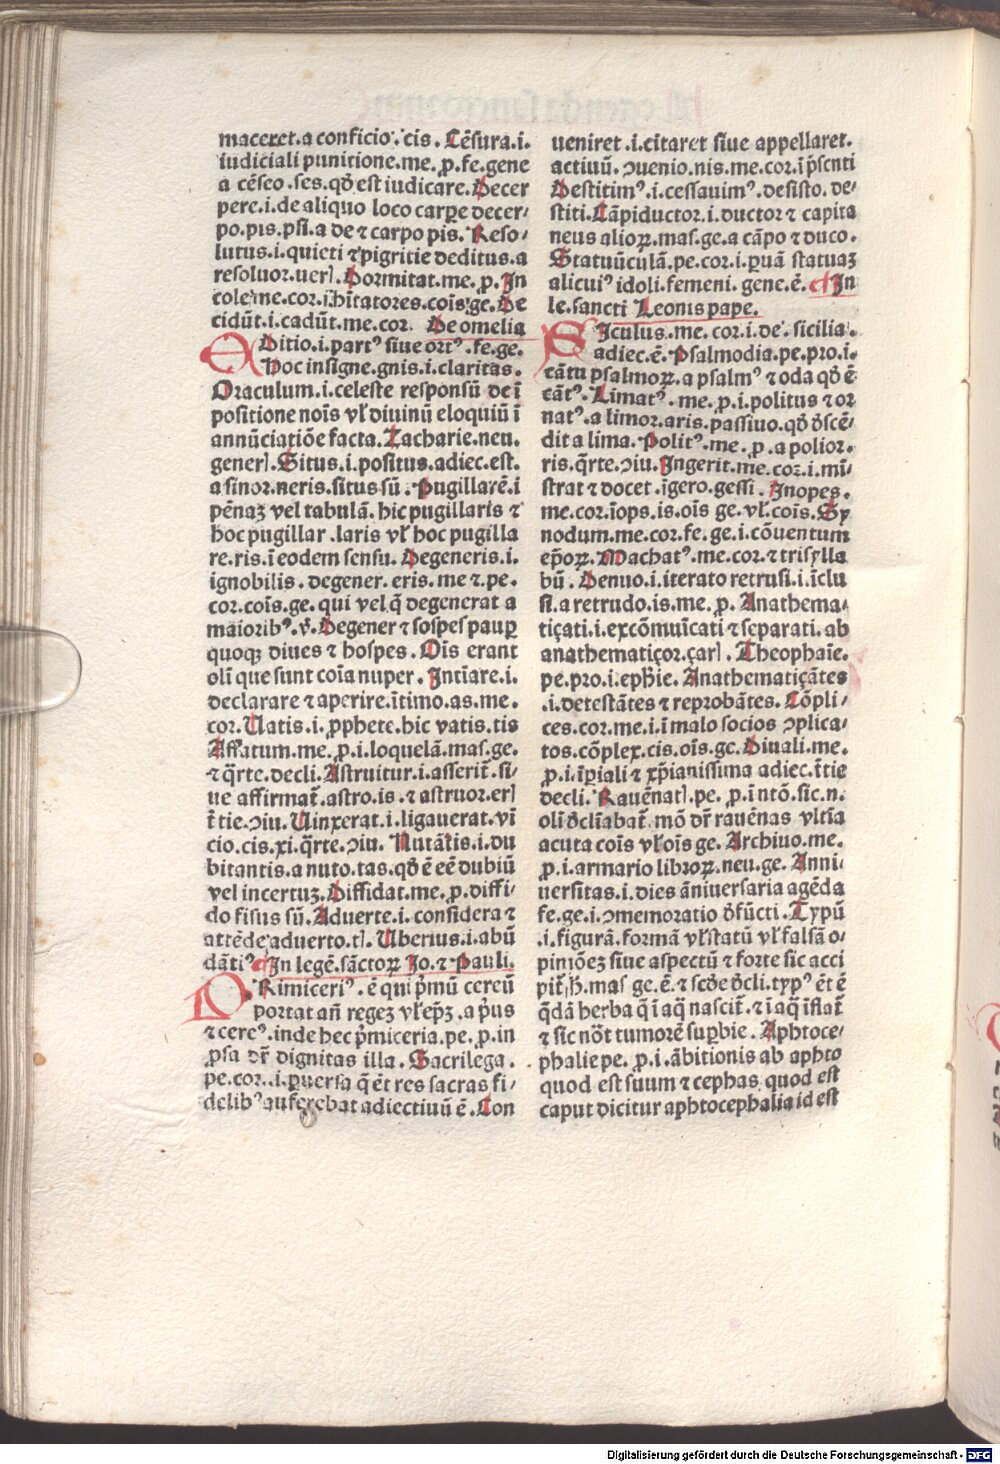 maceret.a conficio.cis. Cēsura.i.
iudiciali punitione.me.ꝓ.fe.gene
a cēseo.ses.qđ est iudicare. Decer
pere.i.de aliquo loco carpe decer/
po.pis.psi.a de ⁊ carpo pis. Reso/
lutus.i.quieti ⁊ pigritie deditus.a
resoluor.uerꝭ. Dormitat.me.ꝓ. In
cole.me.cor.i.hītatores.cōis.ge. De
cidūt.i.cadūt.me.cor. De omelia
EDitio.i.partꝰ siue ortꝰ.fe.ge.
Hoc insigne.gnis.i.claritas.
Oraculum.i.celeste responsū dei ī
positione nōis vł diuinū eloquiū ī
annūciatiōe facta. Zacharie.neu.
generꝭ. Situs.i.positus.adiec.est.
a sinor.neris.situs sū. Pugillarē.i
pēnaꝫ vel tabulā. hic pugillaris ⁊
hoc pugillar.laris vł hoc pugilla
re.ris.ī eodem sensu. Degeneris.i.
ignobilis. degener.eris.me ⁊.pe.
cor.cōis.ge. qui vel q̄ degenerat a
maioribꝰ.v̄. Degener ⁊ sospes paup̱
quoqꝫ diues ⁊ hospes. Oīs erant
oli que sunt coīa nuper. Intīare.i.
declarare ⁊ aperire.ītimo.as.me.
cor. Uatis.i.ꝓphete.hic vatis.tis
Affatum.me.ꝓ.i.loquelā.mas.ge.
⁊ q̄rte.decli. Astruitur.i.asserit̄.si/
ue affirmat̄.astro.is.⁊ astruor.erꝭ
t̄tie.ꝯiu. Uinxerat.i.ligauerat.vī
cio.cis.xi.q̄rte.ꝯiu. Nutātis.i.du
bitantis.a nuto.tas.qđ ē eē dubiū
vel incertuꝫ. Diffidat.me.ꝓ.diffi/
do fisus sū. Aduerte.i.considera ⁊
attēde aduerto.tꝭ. Uberius.i.abū
dātiꝰ In legē.sāctoꝝ Jo.⁊ Pauli.
PRimiceriꝰ.ē qui p̄mū cereū
portat añ regeꝫ vł ep̄ꝫ.a p̄us
⁊ cercꝰ.inde hec p̄miceria.pe.ꝓ.in
ꝓsa dr̄ dignitas illa. Sacrilega.
pe.cor.i.puersa q̄ ēt res sacras fi/
delibꝰ auferebat adiectiuū ē. Con
ueniret.i.citaret siue appellaret.
actiuū.ꝯuenio.nis.me.cor.ī p̄senti
Destitimꝰ.i.cessauimꝰ.desisto.de/
stiti. Cāpiductor.i.ductor ⁊ capita
neus alioꝝ.mas.ge.a cāpo ⁊ duco.
Statuūculā.pe.cor.i.puā statuaꝫ
alicuiꝰ idoli.femeni.gene.ē. In
le.sancti Leonis pape.
SIculus.me.cor.i.de sicilia.
adiec.ē. Psalmodia.pe.pro.i.
cātu psalmoꝝ.a psalmꝰ ⁊ oda qđ ē
cātꝰ. Limatꝰ.me.ꝓ.i.politus ⁊ or
natꝰ.a limor.aris.passiuo.qđ đscē/
dit a lima. Politꝰ.me.ꝓ.a polior.
ris.q̄rte.ꝯiu. Ingerit.me.cor.i.mī/
strat ⁊ docet.īgero.gessi. Inopes.
me.cor.īops.is.oīs ge.vł.cōis. Sy
nodum.me.cor.fe.ge.i cōuentum
ep̄oꝝ. Machatꝰ.me.cor.⁊ trisylla
bū. Denuo.i.iterato retrusi.i.īclu
si.a retrudo.is.me.ꝓ. Anathema/
tiçati.i.excōmuīcati ⁊ separati.ab
anathematiçor.çarꝭ. Theophaīe.
pe.pro.i.ephīe. Anathematiçātes
.i.detestātes ⁊ reprobātes. Cōpli/
ces.cor.me.i.ī malo socios ꝯplica/
tos.cōplex.cis.oīs.ge. Diuali.me.
ꝓ.i.īpiali ⁊ xp̄ianissima adiec.t̄tie
decli. Rauēnatꝭ.pe.ꝓ.i ntō.sic.n.
oli đclīabat̄. mō dr̄ rauēnas vltīa
acuta cōis vł oīs ge. Archiuo.me.
ꝓ.i.armario libroꝝ.neu.ge. Anni/
uersitas.i.dies āniuersaria agēda
fe.ge.i.ꝯmemoratio đfūcti. Typū
.i.figurā.formā vł statū vł falsā o/
piniōeꝫ siue aspectū ⁊ forte sic acci
pit̄.ħ.mas ge.ē.⁊ scđe đcli.typꝰ ēt ē
q̄dā herba q̄ ī aq̄ nascit̄.⁊ ī aq̄ īflat̄
⁊ sic nōt tumorē supbie. Aphtoce/
phalie pe.ꝓ.i.ābitionis ab aphto
quod est suum ⁊ cephas quod est
caput dicitur aphtocephalia id est
Digitalisierung gefördert durch die Deutsche Forschungsgemeinschaft - DFG